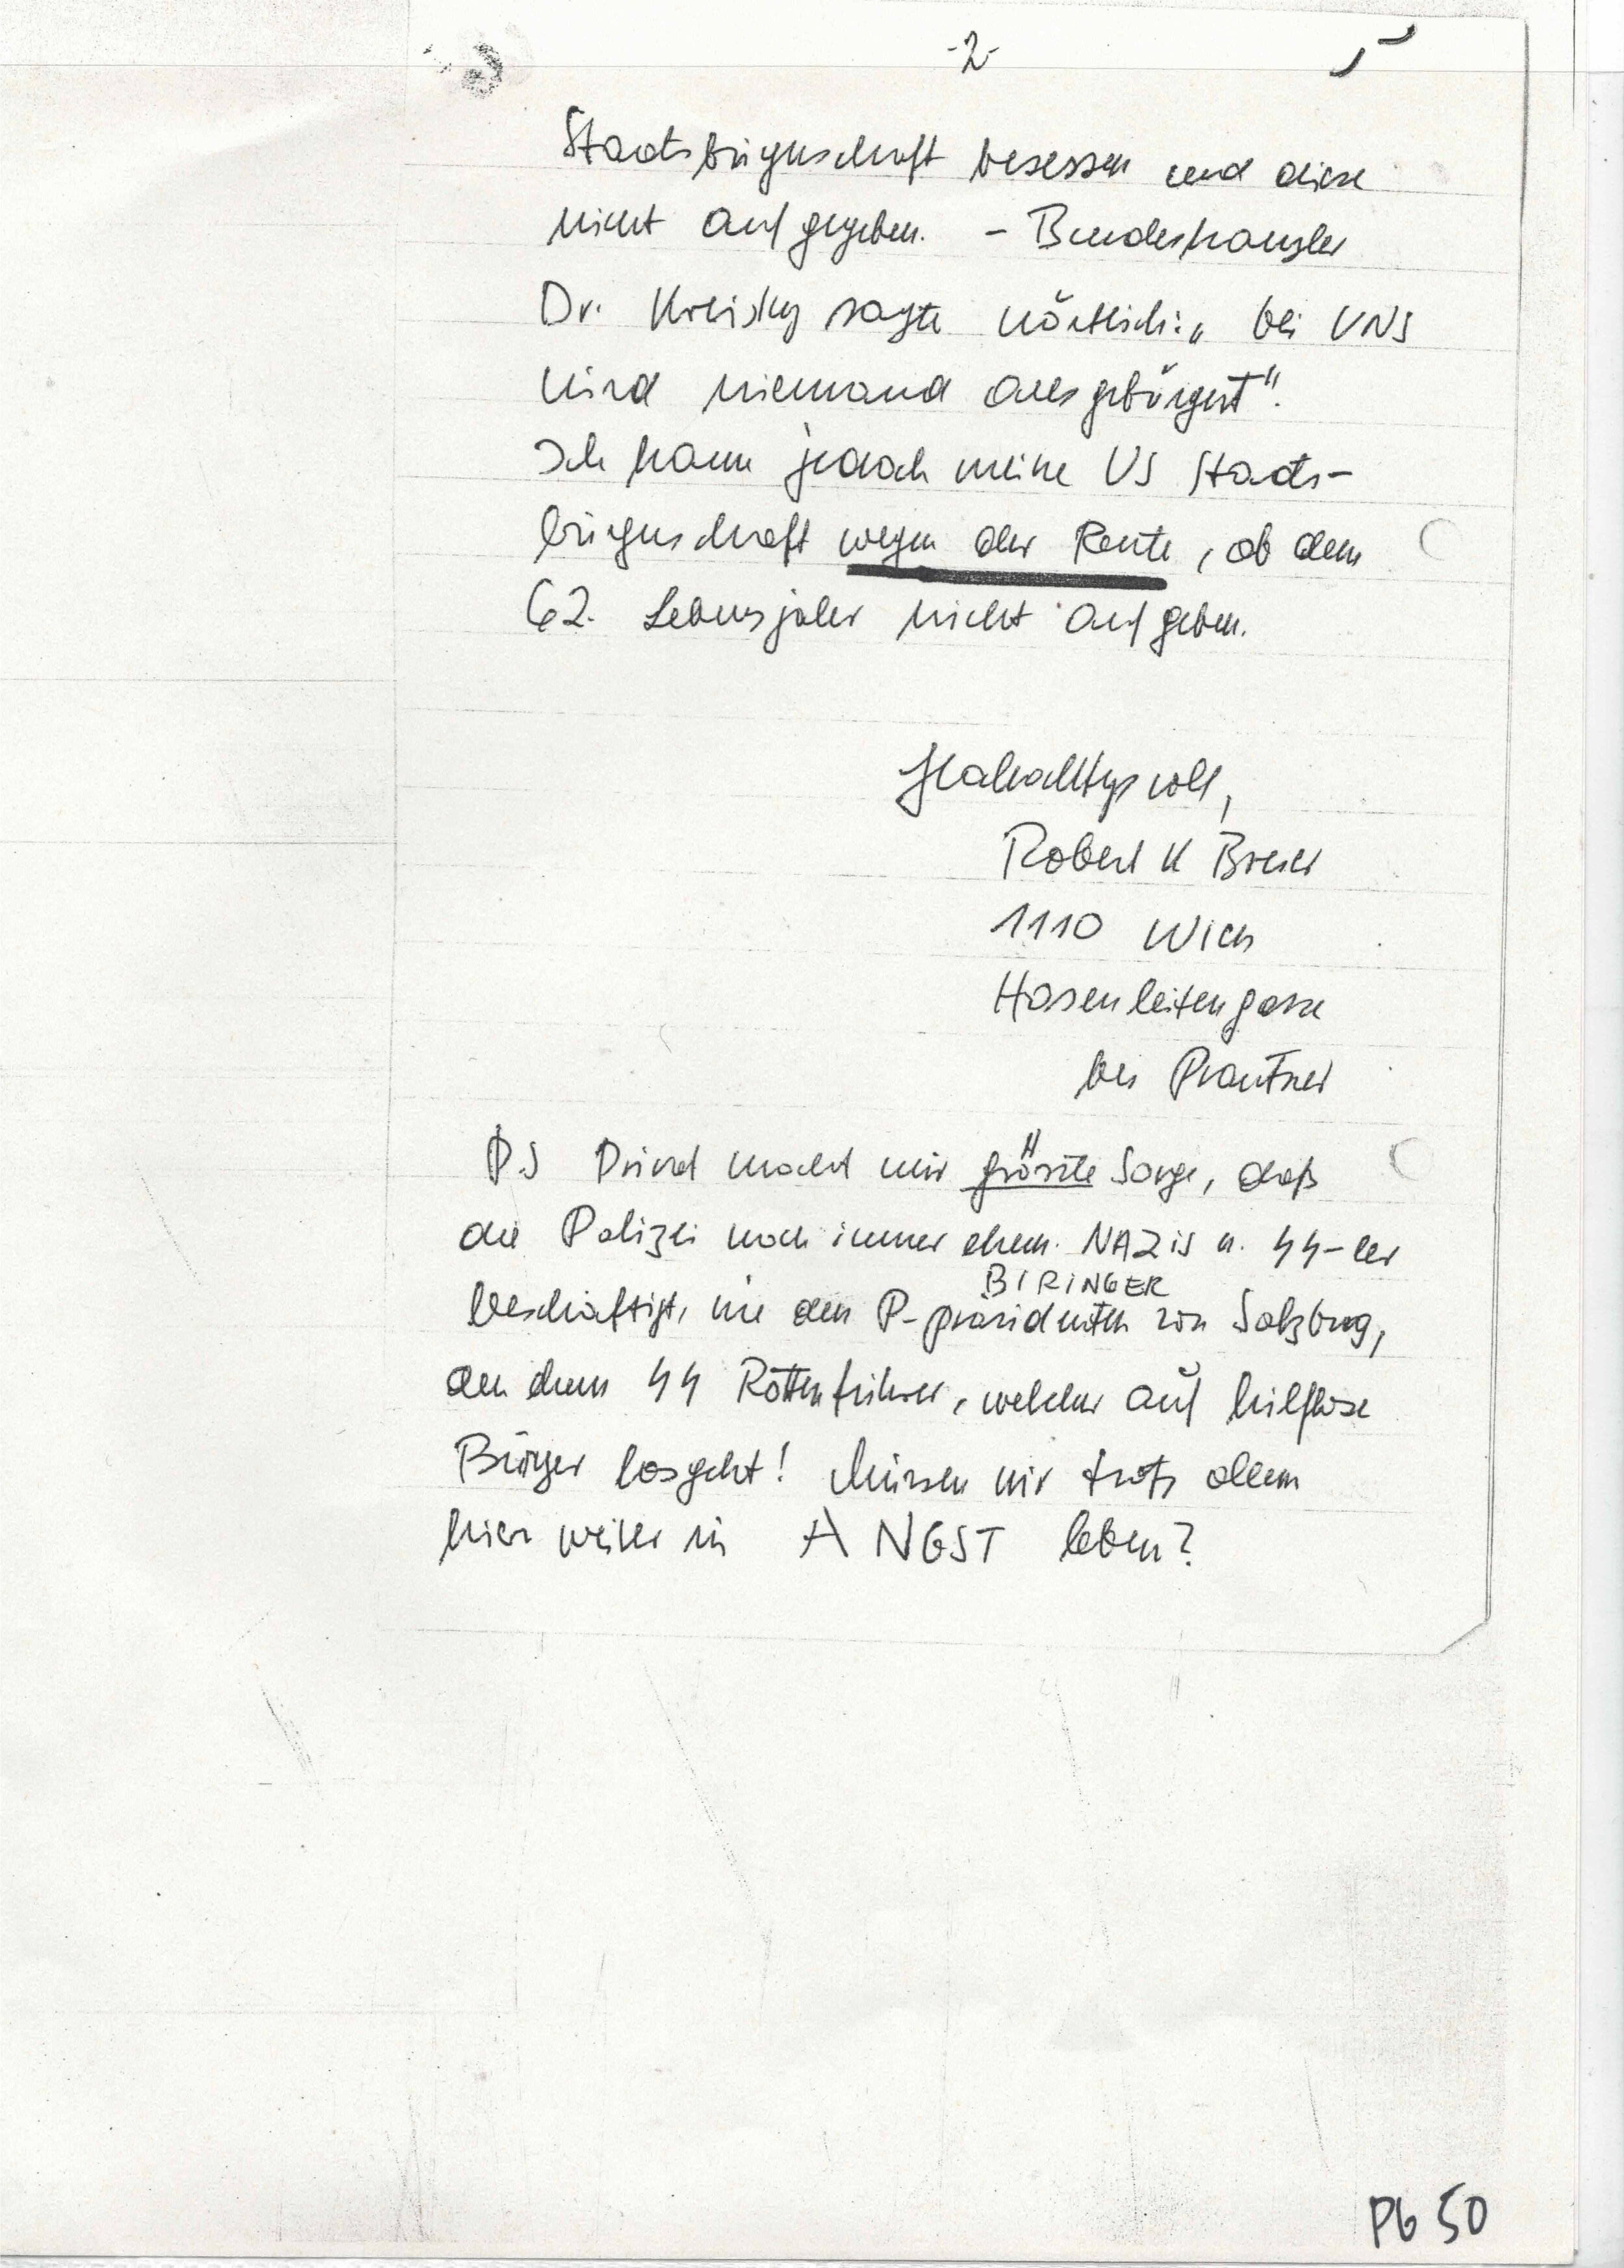 -2-
Staatsbürgerschaft besessen und diese
nicht aufgegeben. - Bundeskanzler
Dr. Kreisky sagte wörtlich: „bei UNS
wird niemand ausgebürgert".
Ich kann jedoch meine US Staats-
bürgerschaft wegen der Rente, ab dem
62. Lebensjahr nicht aufgeben.
Hochachtungsvoll,
Robert K
1110 Wien
Hasenleitengasse
bei Prantner
PS macht mir größte Sorge, daß
die Polizei noch immer ehem. NAZIS u. SS-ler
BIRINGER
beschäftigt, wie den P-präsidenten von Salzburg,
den ehem SS Rottenführer, welcher auf hilflose
Bürger losgeht! Müssen wir trotz allem
hier weiter in ANGST leben?
PG 50